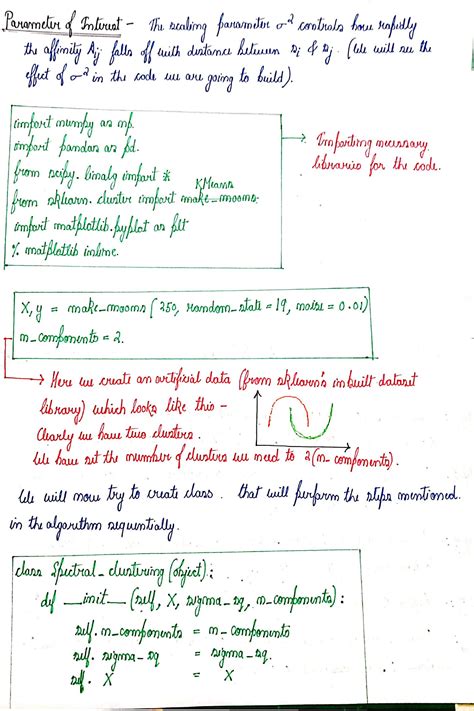 Parameter of Interest - The scaling parameter σ² controls how rapidly
the affinity Aij falls off with distance between si & sj. (We will see the
effect of σ² in the code we are going to build).
import numpy as np.
import pandas as pd.
from scipy. linalg import *
KMeans
from sklearn. cluster import make_moons.
import matplotlib.pyplot as plt
% matplotlib inline.
Importing necessary
libraries for the code.
X, y = make_moons (250, random_state = 19, noise = 0.01)
n_components = 2.
Here we create an artificial data (from sklearn's inbuilt dataset
library) which looks like this -
Clearly we have two clusters.
We have set the number of clusters we need to 2 (n_components).
We will now try to create class. that will perform the steps mentioned.
in the algorithm sequentially.
class Spectral_clustering (object):
def __init__ (self, X, sigma_sq, n_components):
self. n_components = n_components
self. sigma_sq = sigma_sq.
self. X = X